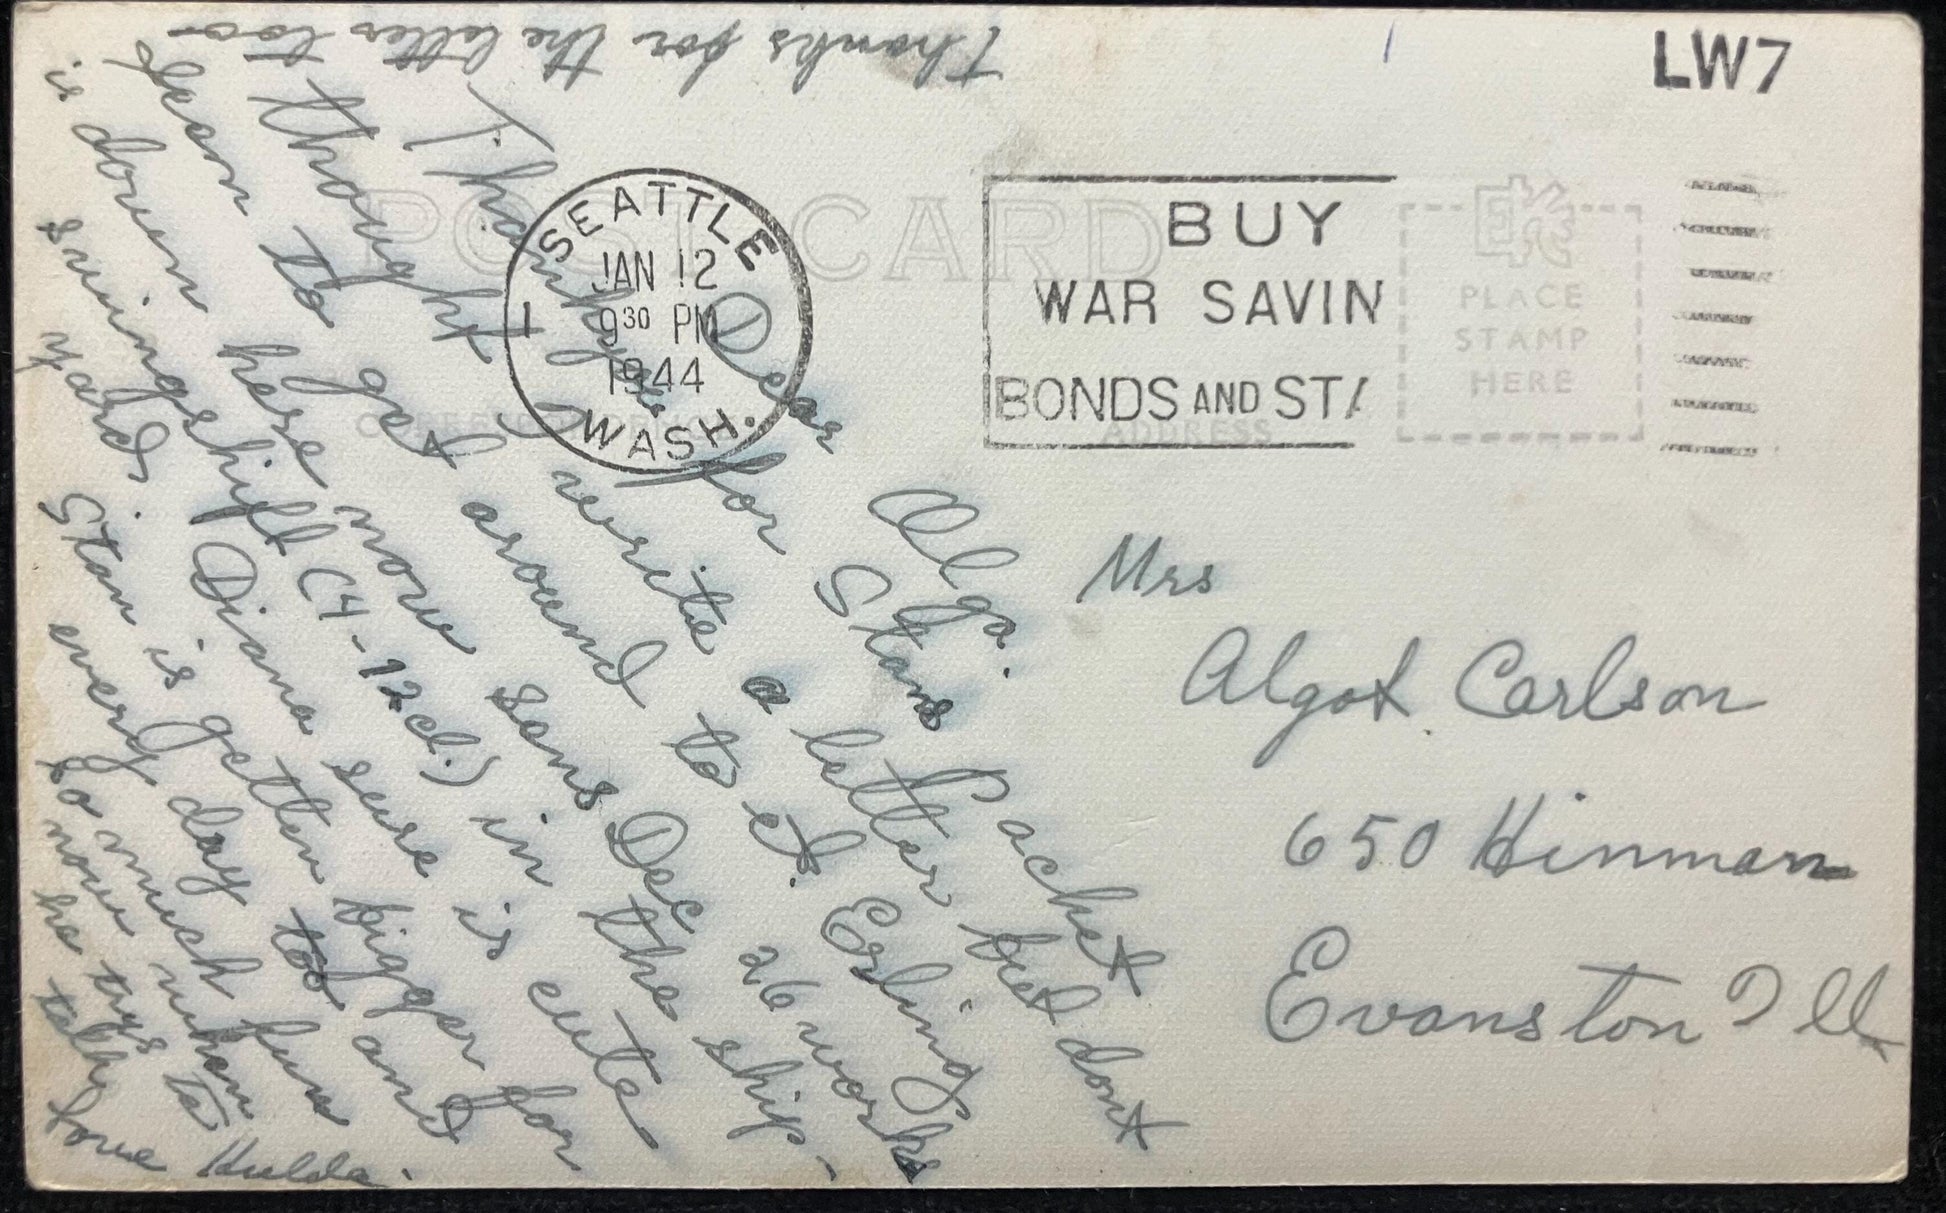 LW7
POST CARD
SEATTLE
JAN 12
9 30 PM
1
1944
WASH.
BUY
WAR SAVIN
BONDS AND STA
EKC
PLACE
STAMP
HERE
CORRESPONDENCE
ADDRESS
Dear Alga.
Thank you for Stans Packet
thought I write a letter but dont
seem to get around to it. Erling
is down here now sens Dec 26 works
swingshift (4-12cl.) in the ship-
yard. Diana sure is cute
Stan is getten bigger for
every day to and
so much fun
now when
he trys to
talk
Love Hulda.
Thanks for the letter too
Mrs
Algot Carlson
650 Hinman
Evanston Ill